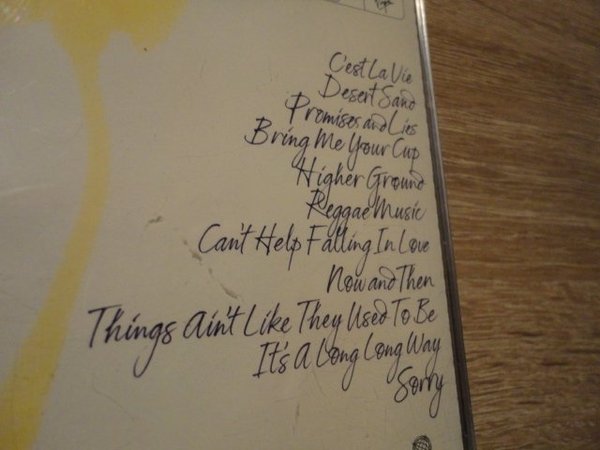 C'est La Vie
Desert Sand
Promises and Lies
Bring Me Your Cup
Higher Ground
Reggae Music
Can't Help Falling In Love
Now and Then
Things Ain't Like They Used To Be
It's A Long Long Way
Sorry